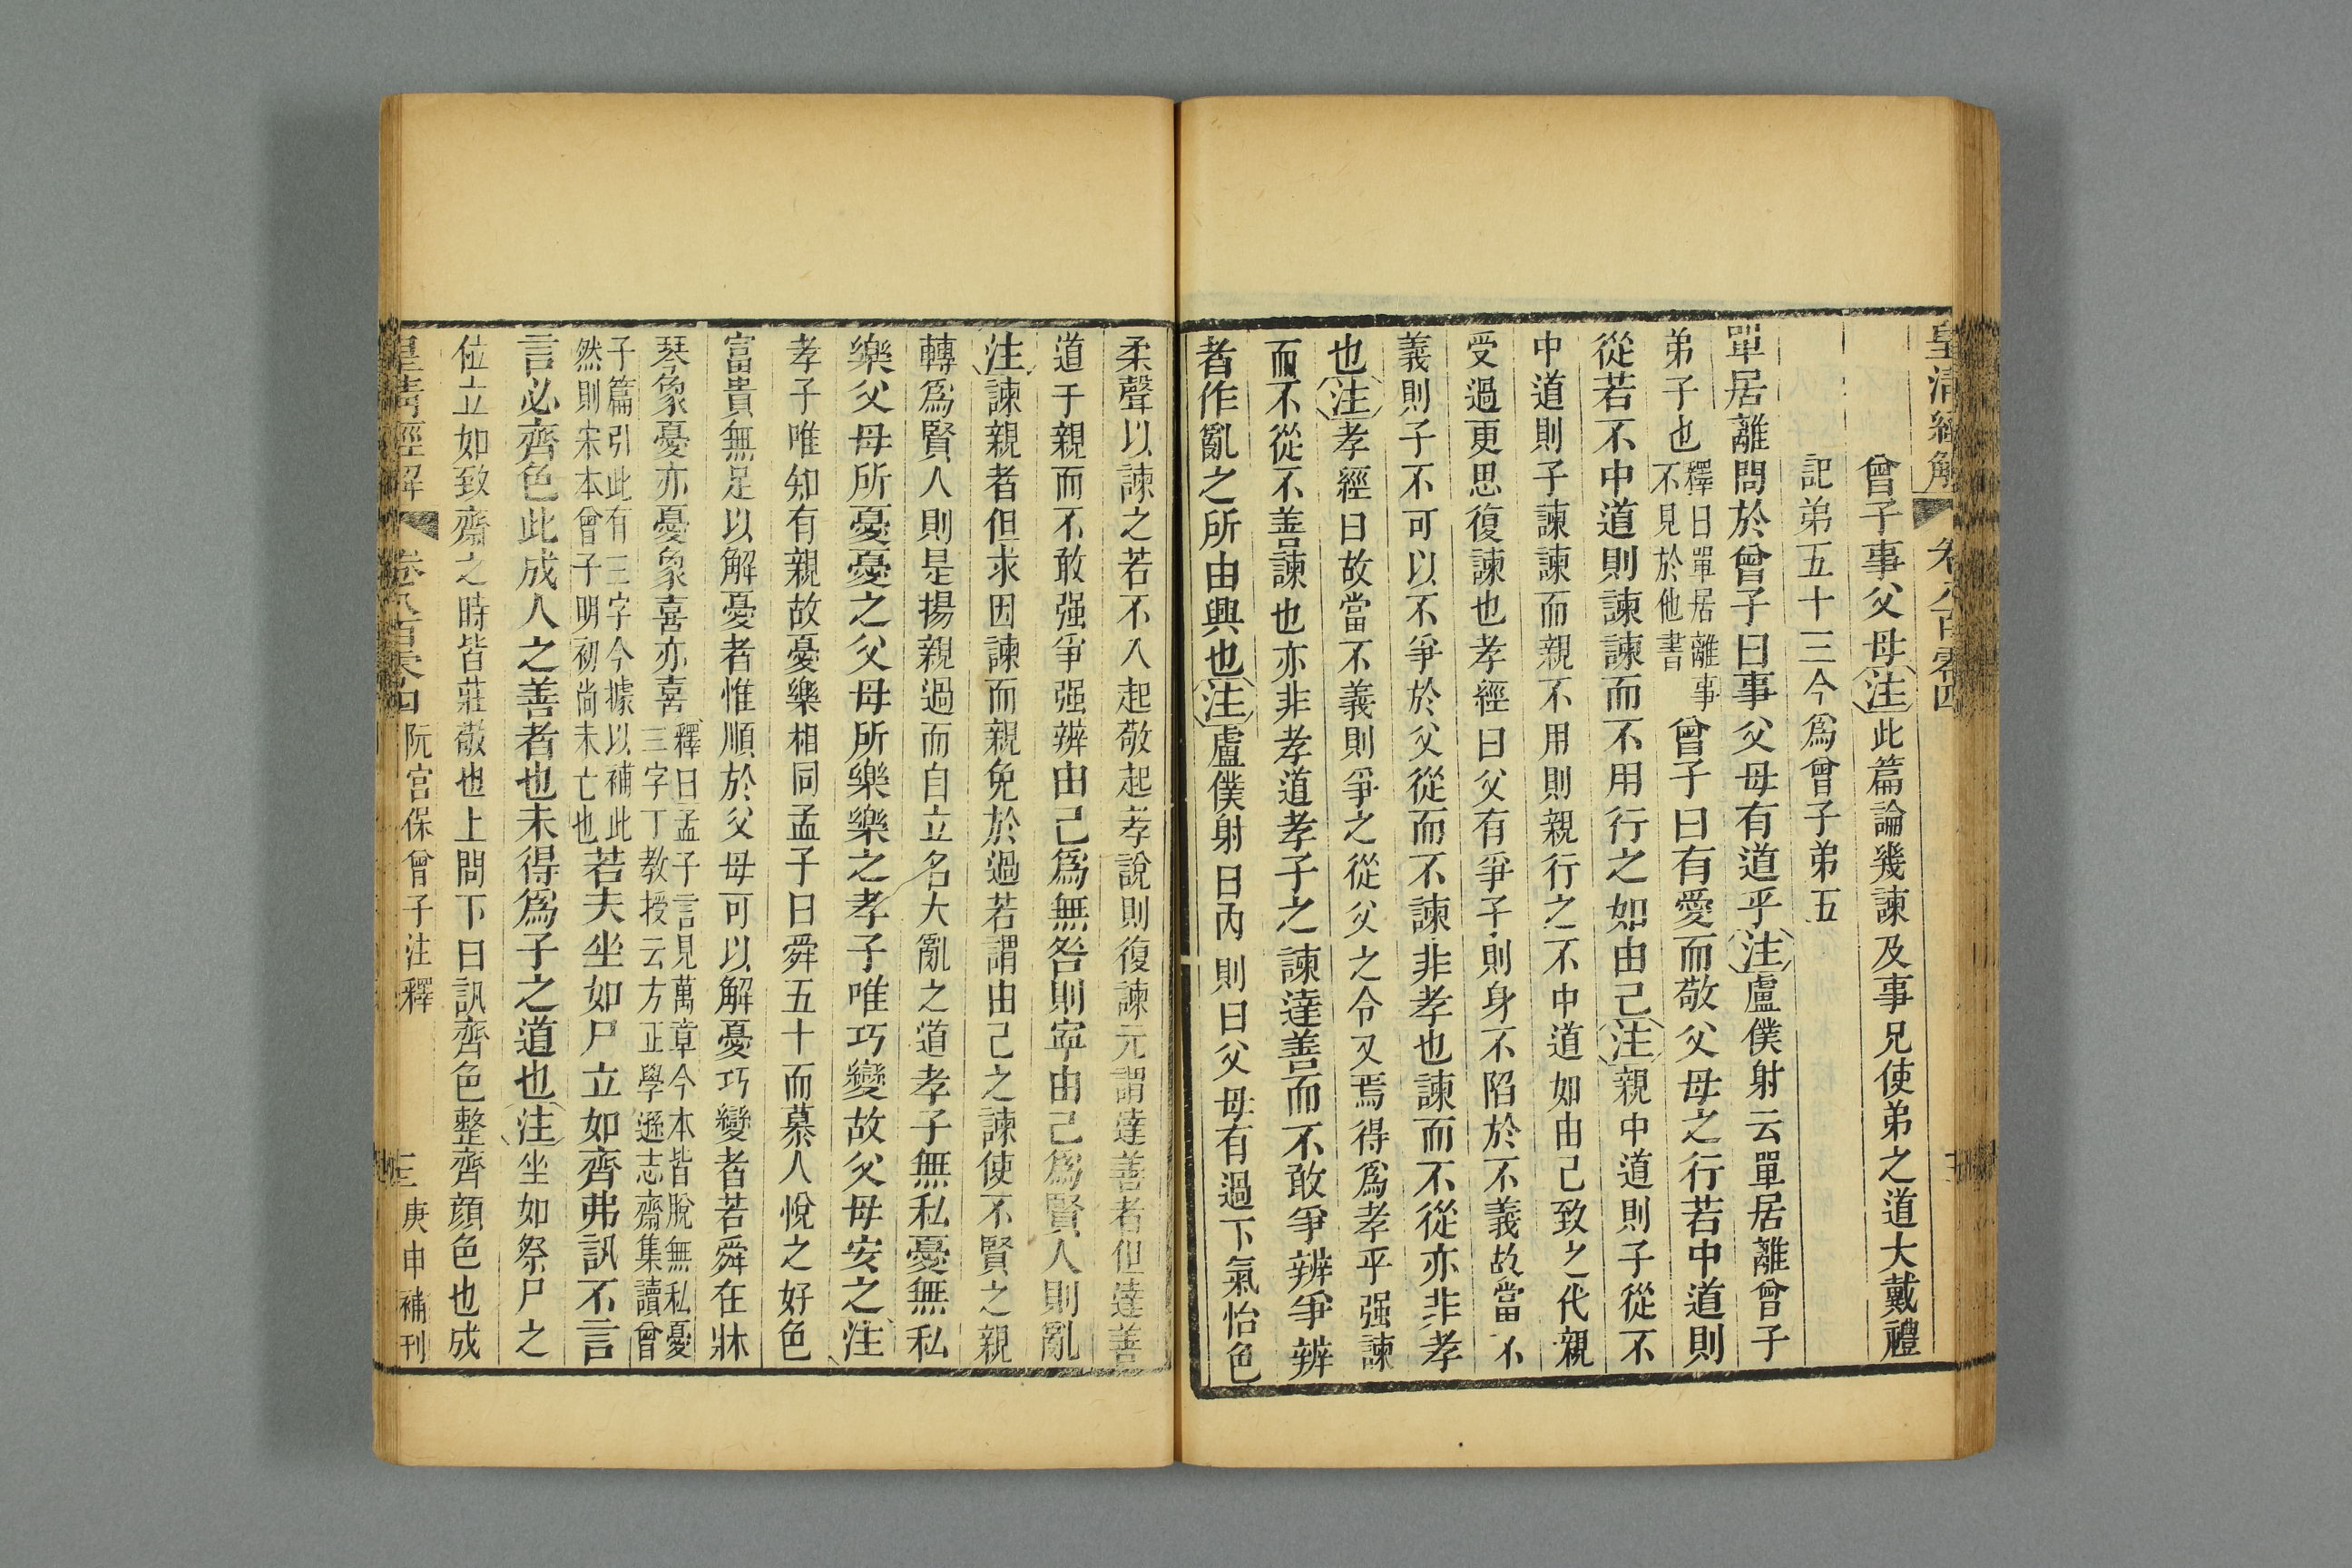 皇清經解 卷八百零四
曾子事父母注此篇論幾諫及事兄使弟之道大戴禮
記弟五十三今爲曾子弟五
單居離問於曾子曰事父母有道乎注盧僕射云單居離曾子
弟子也釋曰單居離事不見於他書曾子曰有愛而敬父母之行若中道則
從若不中道則諫諫而不用行之如由己注親中道則子從不
中道則子諫諫而親不用則親行之不中道如由己致之代親
受過更思復諫也孝經曰父有爭子則身不陷於不義故當不
義則子不可以不爭於父從而不諫非孝也諫而不從亦非孝
也注孝經曰故當不義則爭之從父之令又焉得爲孝乎强諫
而不從不善諫也亦非孝道孝子之諫達善而不敢爭辨爭辨
者作亂之所由興也注盧僕射曰內則曰父母有過下氣怡色
柔聲以諫之若不入起敬起孝說則復諫元謂達善者但達善
道于親而不敢强爭强辨由己爲無咎則寧由己爲賢人則亂
注諫親者但求因諫而親免於過若謂由己之諫使不賢之親
轉爲賢人則是揚親過而自立名大亂之道孝子無私憂無私
樂父母所憂憂之父母所樂樂之孝子唯巧變故父母安之注
孝子唯知有親故憂樂相同孟子曰舜五十而慕人悅之好色
富貴無足以解憂者惟順於父母可以解憂巧變者若舜在牀
琴象憂亦憂象喜亦喜釋曰孟子言見萬章今本皆脫無私憂三字丁教授云方正學遜志齋集讀曾
子篇引此有三字今據以補此然則宋本曾子明初尚未亡也若夫坐如尸立如齊弗訊不言
言必齊色此成人之善者也未得爲子之道也注坐如祭尸之
位立如致齋之時皆莊敬也上問下曰訊齊色整齊顏色也成
皇清經解 卷八百零四 阮宮保曾子注釋 三 庚申補刊